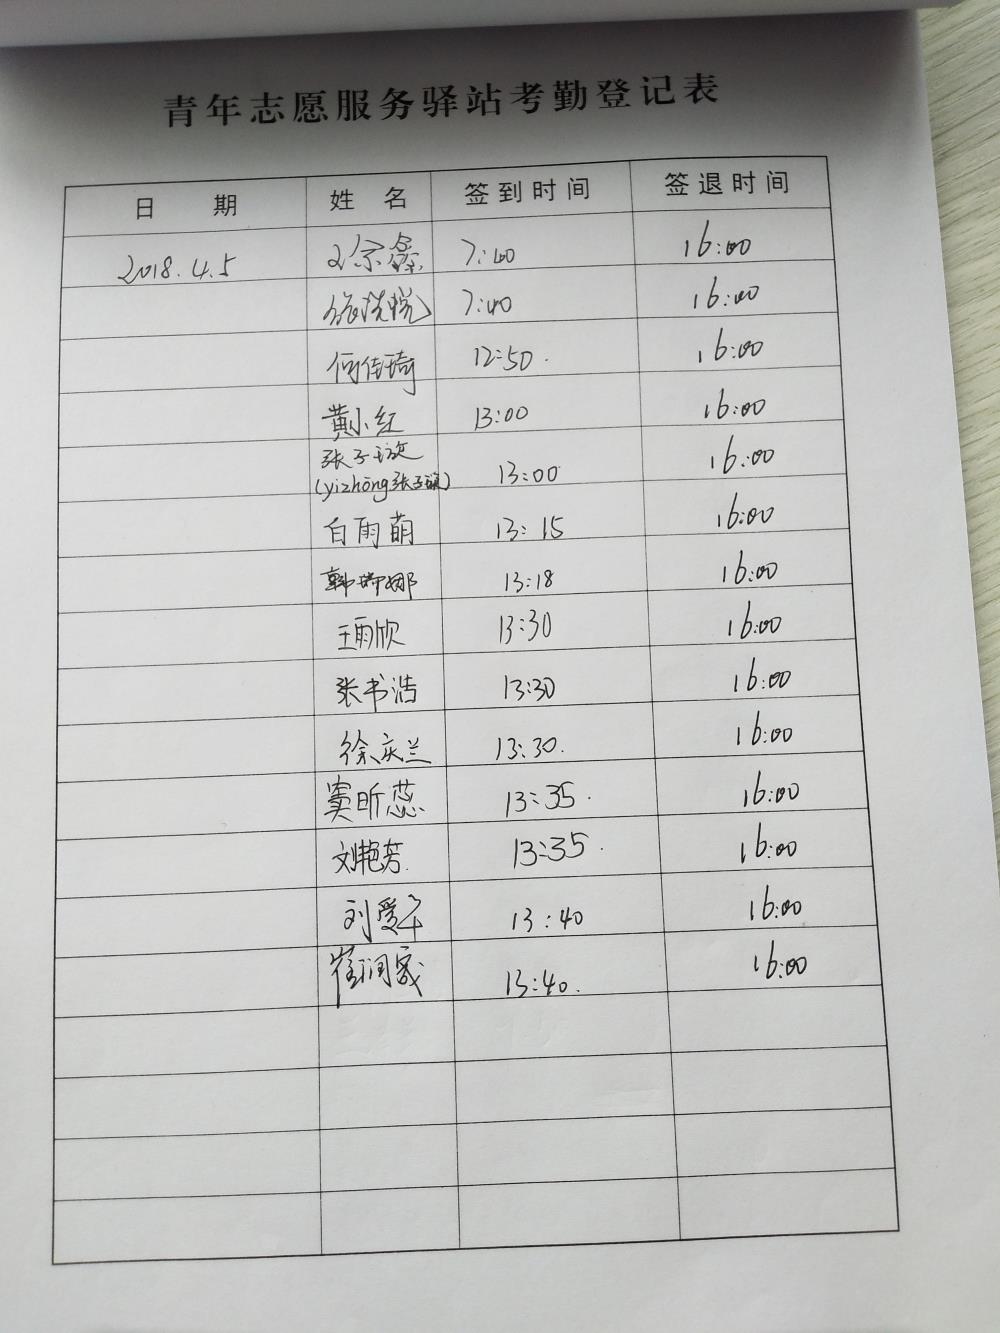 青年志愿服务驿站考勤登记表
日 期 姓 名 签到时间 签退时间
2018.4.5 7:40 16:00
7:40 16:00
何佳琦 12:50. 16:00
黄小红 13:00 16:00
张子璇
(yizhōng张子璇) 13:00 16:00
白雨萌 13:15 16:00
韩瑞娜 13:18 16:00
王雨欣 13:30 16:00
张书浩 13:30 16:00
徐庆兰 13:30. 16:00
窦昕蕊 13:35. 16:00
刘艳芳. 13:35. 16:00
刘爱平 13:40 16:00
13:40. 16:00